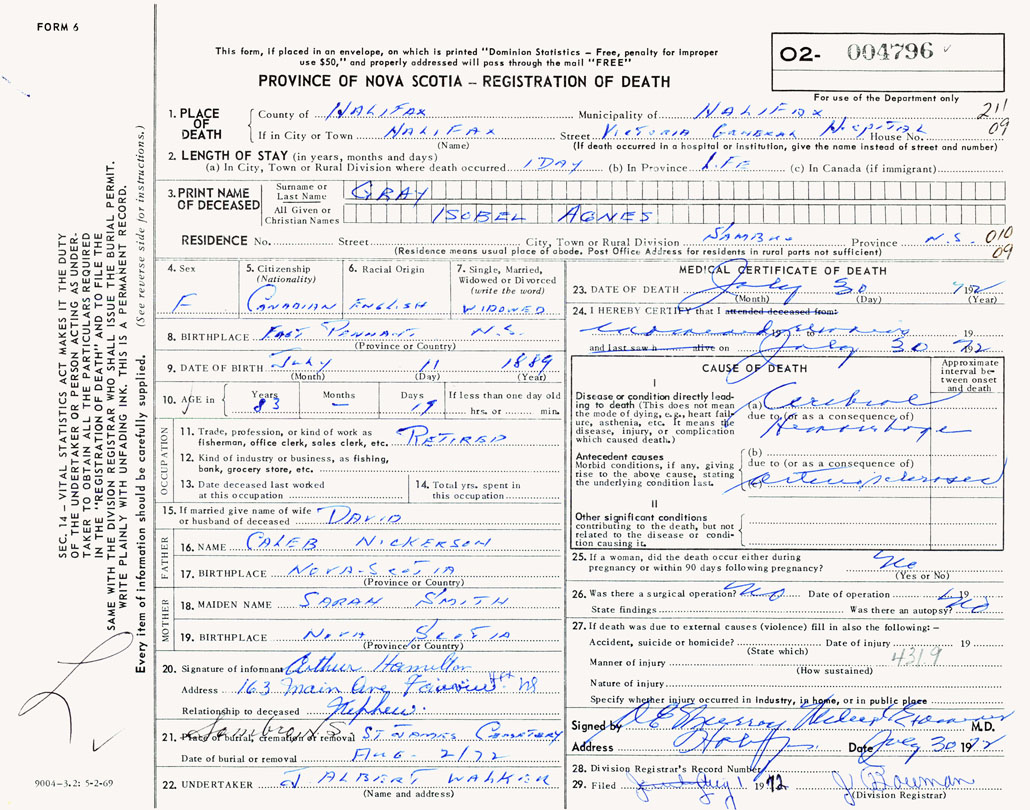 FORM 6
This form, if placed in an envelope, on which is printed "Dominion Statistics – Free, penalty for improper
use $50," and properly addressed will pass through the mail "FREE"
PROVINCE OF NOVA SCOTIA – REGISTRATION OF DEATH
02- 004796
For use of the Department only
SEC. 14 – VITAL STATISTICS ACT MAKES IT THE DUTY
OF THE UNDERTAKER OR PERSON ACTING AS UNDER-
TAKER TO OBTAIN ALL THE PARTICULARS REQUIRED
IN THE "REGISTRATION OF DEATH" AND TO FILE THE
SAME WITH THE DIVISION REGISTRAR WHO SHALL ISSUE THE BURIAL PERMIT.
WRITE PLAINLY WITH UNFADING INK. THIS IS A PERMANENT RECORD.
Every item of information should be carefully supplied. (See reverse side for instructions.)
1. PLACE OF DEATH
County of HALIFAX Municipality of HALIFAX 211
If in City or Town HALIFAX Street VICTORIA GENERAL HOSPITAL House No. 09
(Name) (If death occurred in a hospital or institution, give the name instead of street and number)
2. LENGTH OF STAY (in years, months and days)
(a) In City, Town or Rural Division where death occurred 1 DAY (b) In Province LIFE (c) In Canada (if immigrant)
3. PRINT NAME OF DECEASED
Surname or Last Name GRAY
All Given or Christian Names ISOBEL AGNES
RESIDENCE No. Street City, Town or Rural Division SAMBRO Province N.S. 010
(Residence means usual place of abode. Post Office Address for residents in rural parts not sufficient) 09
4. Sex F
5. Citizenship (Nationality) CANADIAN
6. Racial Origin ENGLISH
7. Single, Married, Widowed or Divorced (write the word) WIDOWED
8. BIRTHPLACE EAST PENNANT N.S.
(Province or Country)
9. DATE OF BIRTH JULY 11 1889
(Month) (Day) (Year)
10. AGE in Years 83 Months – Days 19 If less than one day old hrs. or min.
OCCUPATION
11. Trade, profession, or kind of work as fisherman, office clerk, sales clerk, etc. RETIRED
12. Kind of industry or business, as fishing, bank, grocery store, etc.
13. Date deceased last worked at this occupation
14. Total yrs. spent in this occupation
15. If married give name of wife or husband of deceased DAVID
FATHER
16. NAME CALEB NICKERSON
17. BIRTHPLACE NOVA-SCOTIA
(Province or Country)
MOTHER
18. MAIDEN NAME SARAH SMITH
19. BIRTHPLACE NOVA SCOTIA
(Province or Country)
20. Signature of informant Arthur Hamilton
Address 163 Main Ave Fairview Hfx NS
Relationship to deceased Nephew.
21. Place of burial, cremation or removal Sambro N.S. ST JAMES CEMETERY
Date of burial or removal AUG 2/72
22. UNDERTAKER J ALBERT WALKER
(Name and address)
9004-3.2: 5-2-69
MEDICAL CERTIFICATE OF DEATH
23. DATE OF DEATH July 30 1972
(Month) (Day) (Year)
24. I HEREBY CERTIFY that I attended deceased from:
19 19
and last saw h alive on July 30 1972
CAUSE OF DEATH
Approximate interval between onset and death
I
Disease or condition directly leading to death (This does not mean the mode of dying, e.g., heart failure, asthenia, etc. It means the disease, injury, or complication which caused death.)
(a) Cerebral
due to (or as a consequence of)
Hemorrhage
Antecedent causes
Morbid conditions, if any, giving rise to the above cause, stating the underlying condition last.
(b)
due to (or as a consequence of)
(c) Arteriosclerosis
II
Other significant conditions
contributing to the death, but not related to the disease or condition causing it.
25. If a woman, did the death occur either during pregnancy or within 90 days following pregnancy? No
(Yes or No)
26. Was there a surgical operation? No Date of operation 19
State findings Was there an autopsy? No
27. If death was due to external causes (violence) fill in also the following: –
Accident, suicide or homicide? Date of injury 19
(State which)
4319
Manner of injury
(How sustained)
Nature of injury
Specify whether injury occurred in industry, in home, or in public place
Signed by Medical Examiner M.D.
Address Halifax Date July 30 1972
28. Division Registrar's Record Number
29. Filed Aug 1 1972 J Bowman
(Division Registrar)